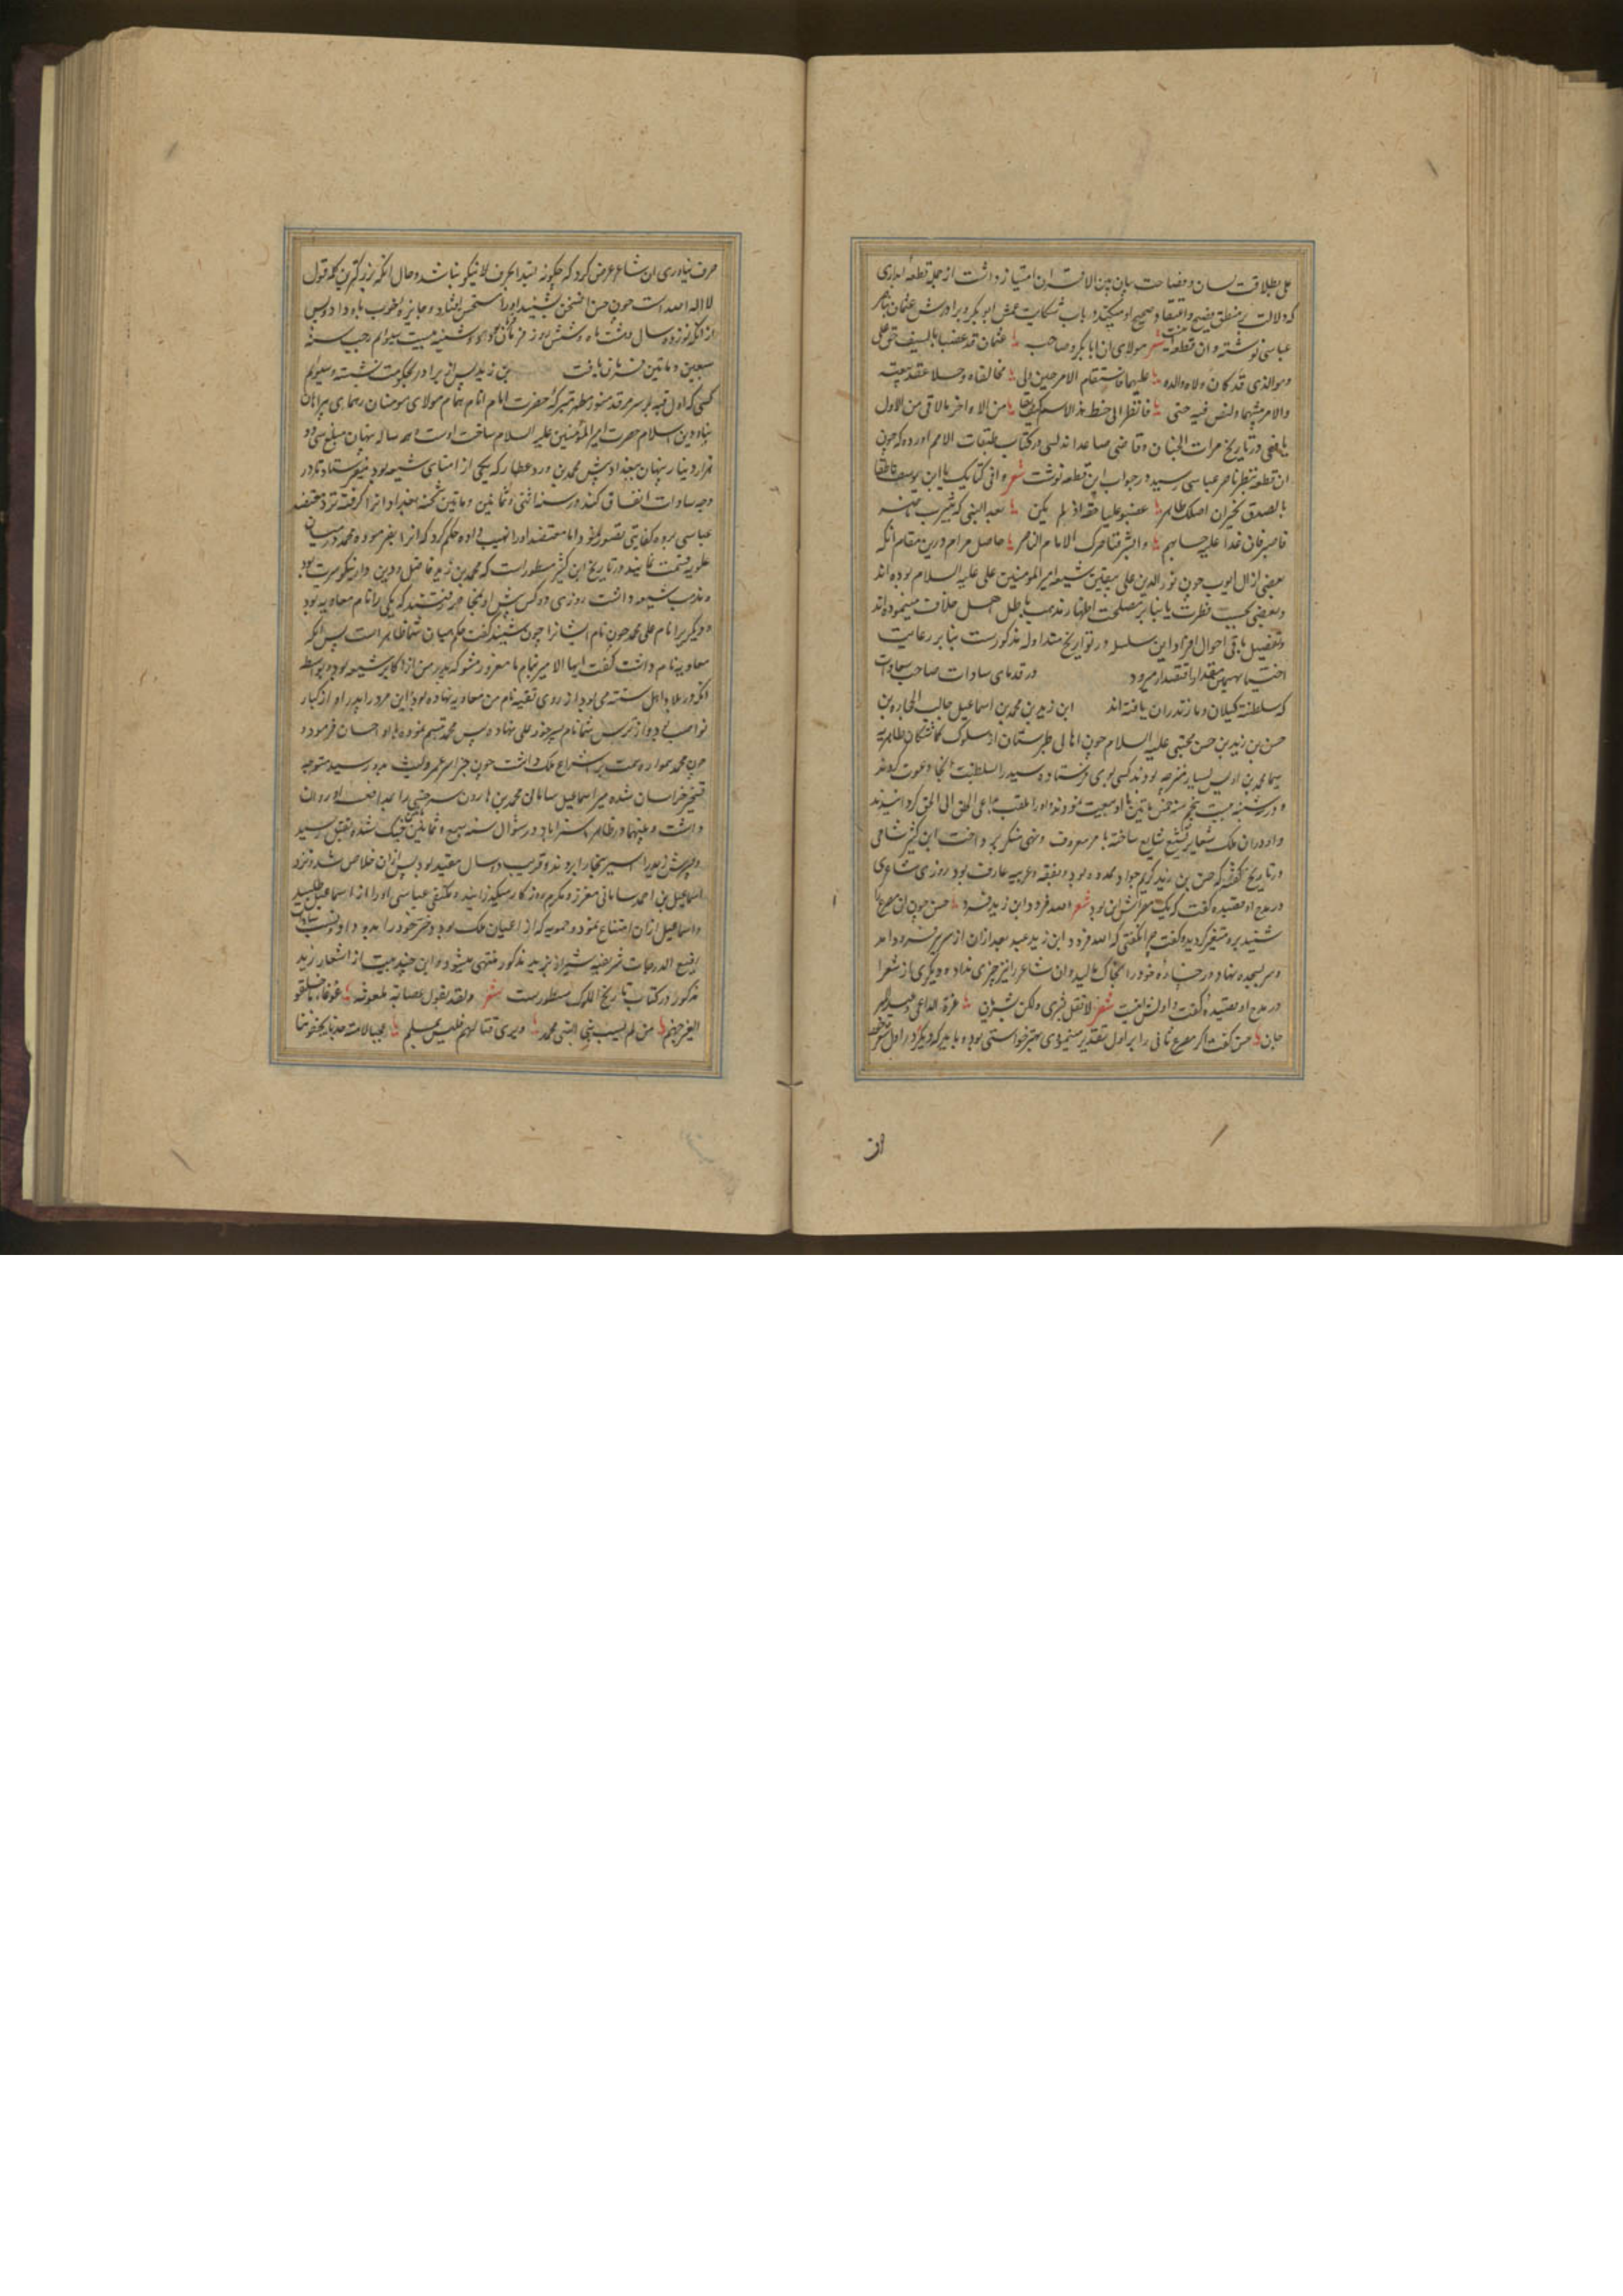 علی بطلاقت لسان و فصاحت بیان بین الاقران امتیاز داشت از جمله قطعه ابداری
که دلالت بر منطق فصیح و اعتقاد صحیح او میکند در باب شکایت عمش ابو بکر و برادرش عثمان بناصر
عباسی نوشته و ان قطعه اینست شعر مولای ان ابا بکر و صاحبه عثمان قد غصبا بالسیف حق علی
وهو الذی قد کان ولاه والده علیهما فاستقام الامر حین ولی فخالفاه و حلا عقد بیعته
والامر بینهما والنص فیه جلی فانظر الی حظ هذا الاسم کیف لقی من الاواخر ما لاقی من الاول
یافعی در تاریخ مرات الجنان و قاضی صاعد اندلسی در کتاب طبقات الامم اورده که چون
ان قطعه بنظر ناصر عباسی رسید در جواب این قطعه نوشت شعر وافی کتابک یا ابن یوسف ناطقا
بالصدق یخبر ان اصلک طاهر غصبوا علیا حقه اذ لم یکن بعد النبی له بیثرب ناصر
فاصبر فان غدا علیه حسابهم وابشر فناصرک الامام الناصر حاصل مرام درین مقام انکه
بعضی از ال ایوب چون نور الدین علی بیقین شیعه امیر المومنین علی علیه السلام بوده اند
و بعضی بحسب فطرت یا بنا بر مصلحت اظهار مذهب باطل اهل خلافت مینموده اند
و تفصیل باقی احوال افراد این سلسله در تواریخ متداوله مذکورست بنا بر رعایت
اختصار بهمین مقدار اقتصار میرود در قدمای سادات صاحب سعادت
که سلطنت کیلان و مازندران یافته اند ابن زید بن محمد بن اسماعیل جالب الحجاره بن
حسن بن زید بن حسن مجتبی علیه السلام چون اهالی طبرستان از سلوک کماشتکان طاهریه
سیما محمد بن اوس بسیار متضرر بودند کسی بوی فرستاده سید را بسلطنت انجا دعوت کردند
و در سنه بیست و پنجم سنه خمسین ماتین با او بیعت نمودند و او را ملقب بداعی الخلق الی الحق کردانیدند
و او در ان ملک شعایر تشیع شایع ساخته بامر معروف و نهی منکر پرداخت ابن کثیر شامی
در تاریخ کفته که حسن بن زید کریم جواد ممدوح بود و بفقه و عربیه عارف بود روزی شاعری
در مدح او قصیده کفت که یک مصراعش این بود شعر الله فرد و ابن زید فرد حسن چون ان مصرع
شنید برو متغیر کردیده کفت چرا نکفتی که الله فرد و ابن زید عبد بعد از ان از سریر فرود امد
و سر بسجده نهاد و رخساره خود را بخاک مالید و ان شاعر را نیز چیزی نداد و دیکری از شعرا
در مدح او قصیده کفت و اولش اینست شعر لا تقل بشری ولکن بشریان غرة الداعی و عید المهر
جان حسن کفت اکر مصرع ثانی را بر اول تقدیم مینمودی بهتر خواستی بود و باید که دیکر در اول شعر
از
حرف نیاوری ان شاعر عرض کرد که چکونه ابتدا بحرف لا نیکو نباشد و حال انکه بزرکترین کلمه قول
لا اله الا الله است چون حسن این سخن بشنید او را مستحسن افتاد و جایزه خوب باو داد و پس
از انکه نوزده سال و هشت ماه و شش روز فرمانفرمای بود دوشنبه بیست سیوم رجب سنه
سبعین و ماتین فرمان یافت بن زید پس از برادر بحکومت نشست و سیوم
کسی که اول قبه بر سر مرقد منور مطهر متبرکه حضرت امام انام همام مولای مومنان رهنمای پیراهان
پناه دین اسلام حضرت امیر المؤمنین علیه السلام ساخت اوست و هر ساله پنهان مبلغ سی و دو
هزار دینار پنهان ببغداد پیش محمد بن ورد عطار که یکی از امنای شیعه بود میفرستاد تا در
وجه سادات انفاق کند در سنه اثنی و ثمانین و ماتین شحنه بغداد انرا کرفته نزد معتضد
عباسی برده کفایتی تصور نمود و اما معتضد او را نهیب داده حکم کرد که انرا بفرموده محمد در میان
علویه قسمت نمایند در تاریخ ابن کثیر مسطور است که محمد بن زید فاضل و دین دار نیکو سیرت بود
و مذهب شیعه داشت روزی دو کس پیش او بمحاکمه رفتند که یکی را نام معاویه بود
و دیکر را نام علی محمد چون نام ایشانرا چون شنید کفت حکم میان شما ظاهر است پس انکه
معاویه نام داشت کفت ایها الامیر بنام ما مغرور مشو که پدر من از اکابر شیعه بود و بواسطه
انکه در بلاد اهل سنت می بود از روی تقیه نام من معاویه نهاده بود این مرد را پدر او از کبار
نواصب بود و از ترس شما نام پسر خود علی نهاده پس محمد تبسم نموده باو احسان فرمود و
چون محمد همواره همت بر انتزاع ملک داشت چون خبر اسر عمرو لیث بدو رسید متوجه
تسخیر خراسان شده میر اسماعیل سامان محمد بن هارون سرخسی را بمدافعه او روان
داشت و بینهما در ظاهر استراباد در شوال سنه سبع و ثمانین جنک شده بقتل رسید
و پسرش زید را اسیر بخارا بردند و قریب دو سال مقید بود پس از ان خلاص شد و نزد
اسماعیل بن احمد سامانی معزز و مکرم روزکار میکذرانید و مکتفی عباسی او را از اسماعیل طلبید
و اسماعیل از ان امتناع نمود و حمویه که از اعیان ملک بود دختر خود را بدو داد و نسب سادات
رفیع الدرجات شریفیه شیراز بزید مذکور منتهی میشود و این چند بیت از اشعار زید
مذکور در کتاب تاریخ الملوک مسطورست شعر ولقد یقول عصابة ملعونة غوغاء ما خلقو
الغیر جهنم من لم یسب بنی النبی محمد ویری قتالهم فلیس بمسلم عجبا لامة جدنا یجفوننا